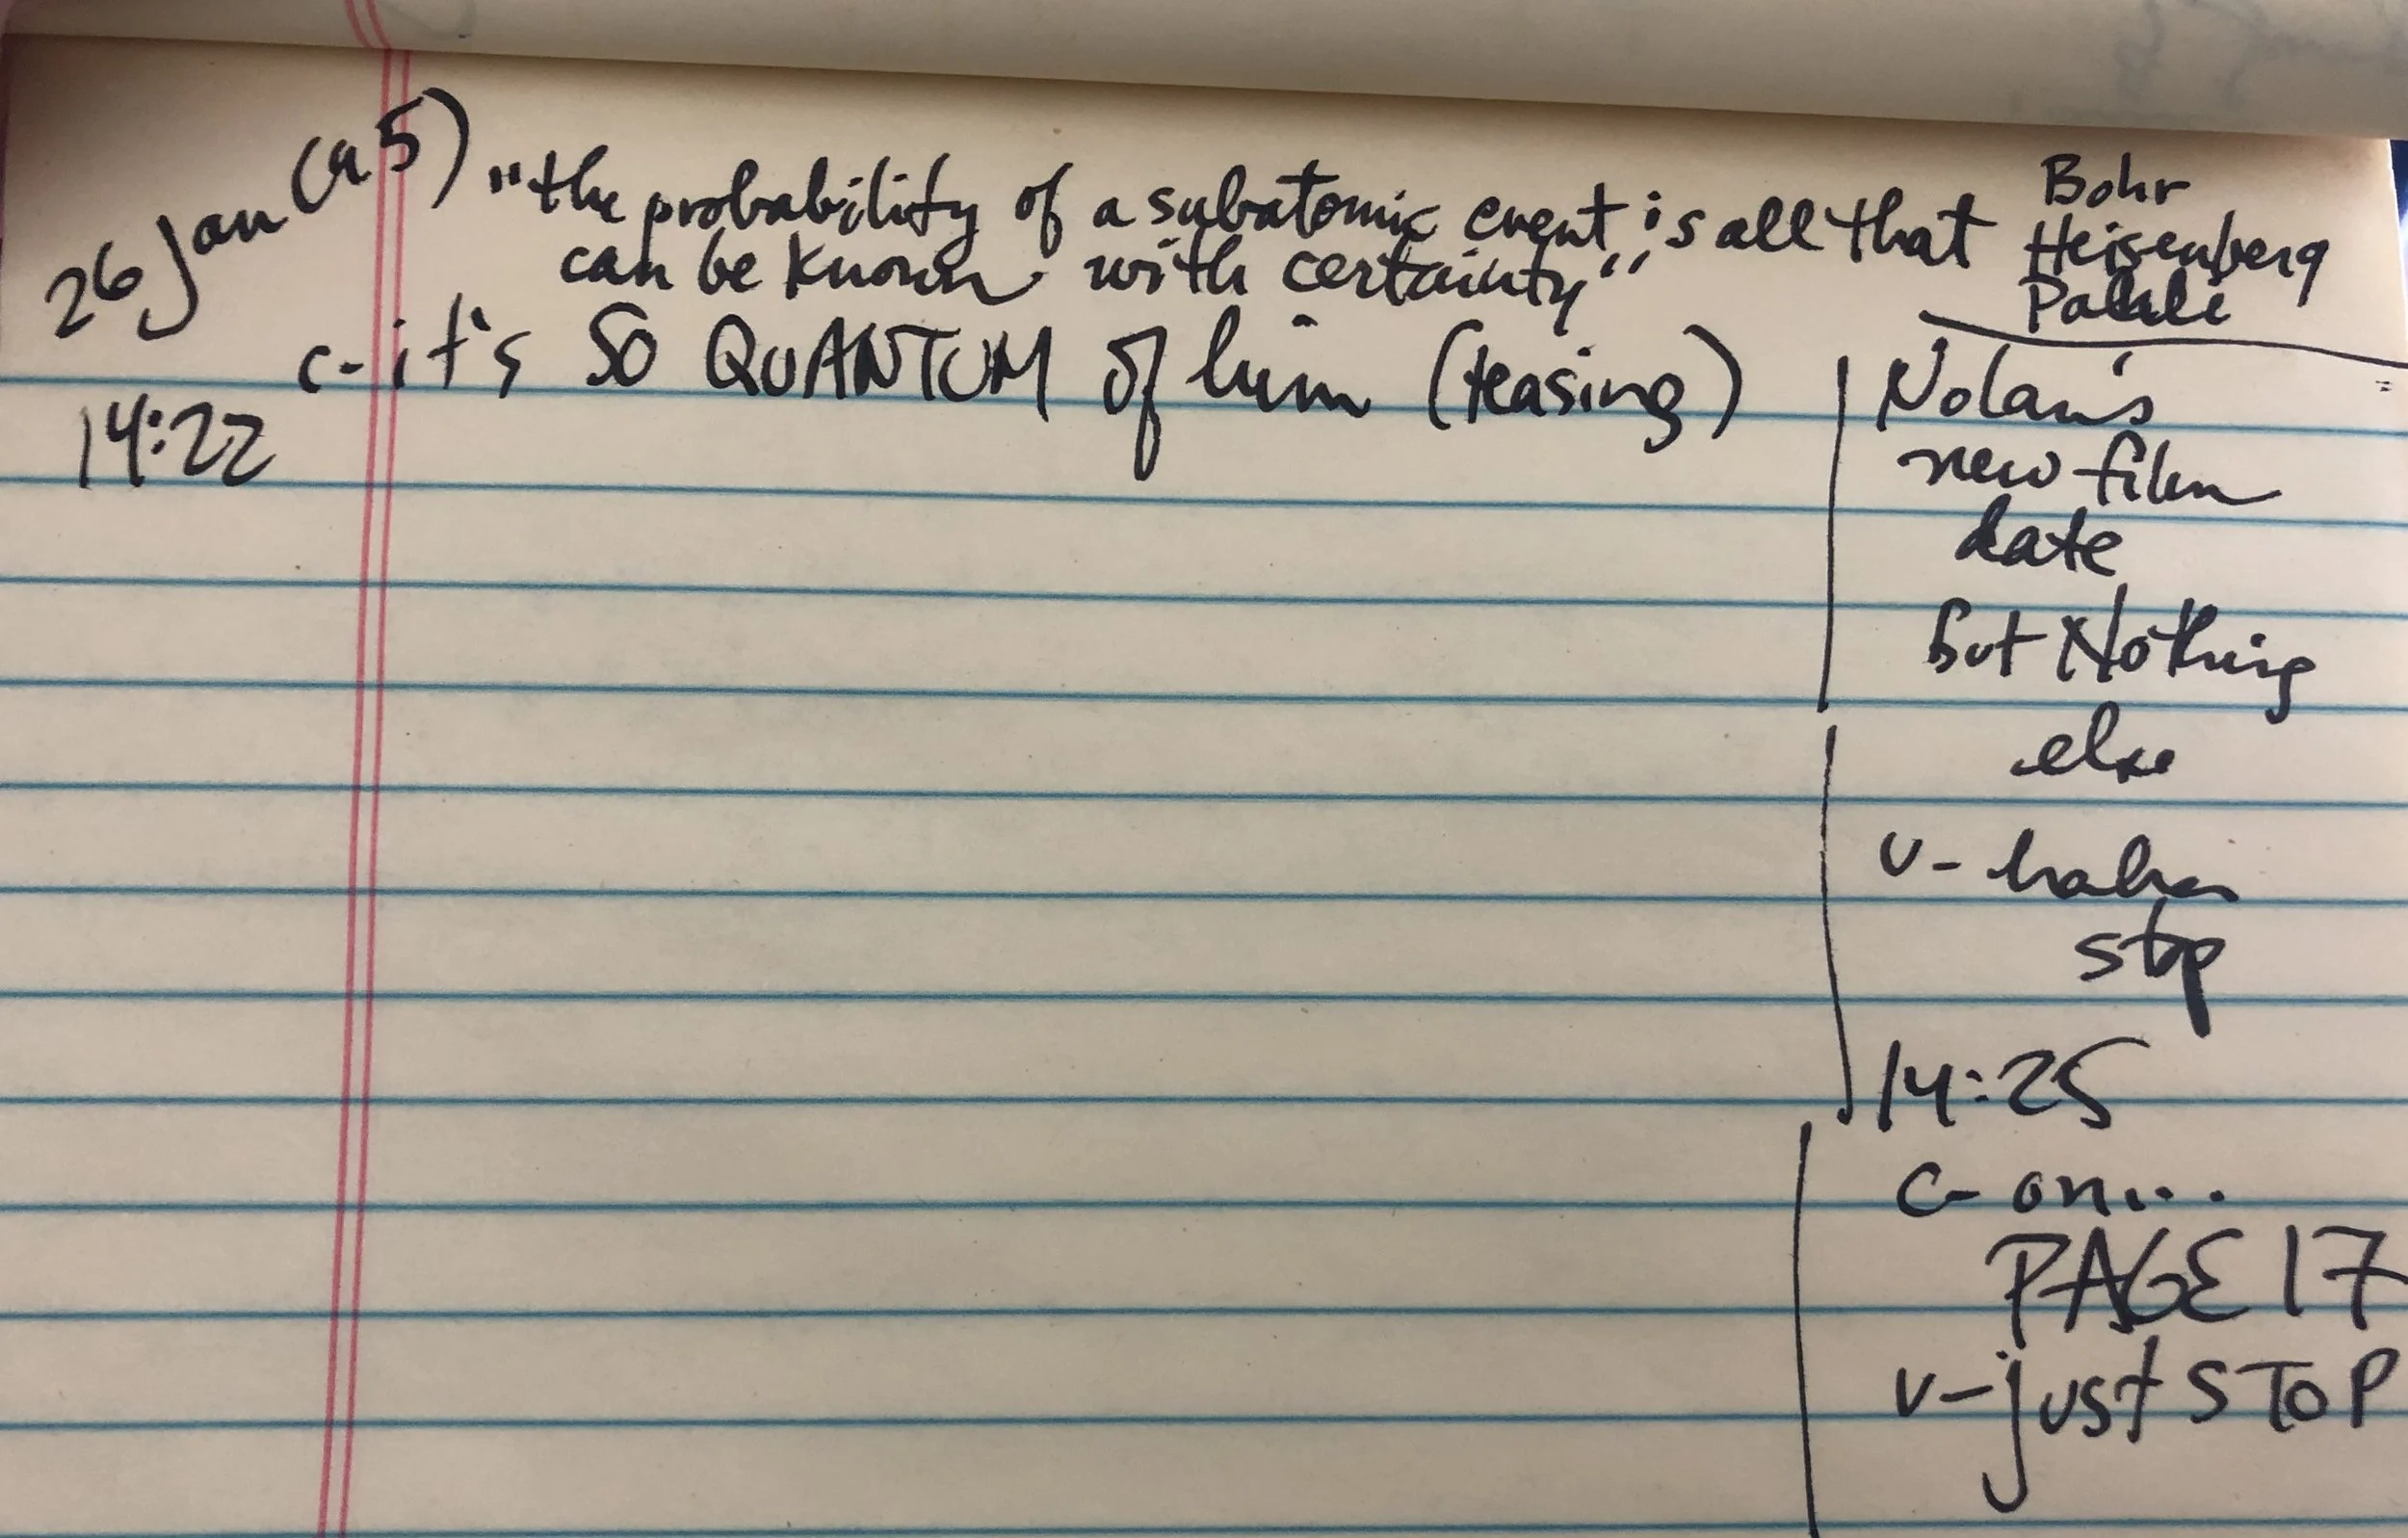 26 Jan (a5)
"the probability of a subatomic event is all that
can be known with certainty"
Bohr
Heisenberg
Pauli
14:22
c- it's SO QUANTUM of him (teasing)
Nolan's
new film
date
but Nothing
else
v- haha
stop
14:25
c- on...
PAGE 17
v- just STOP